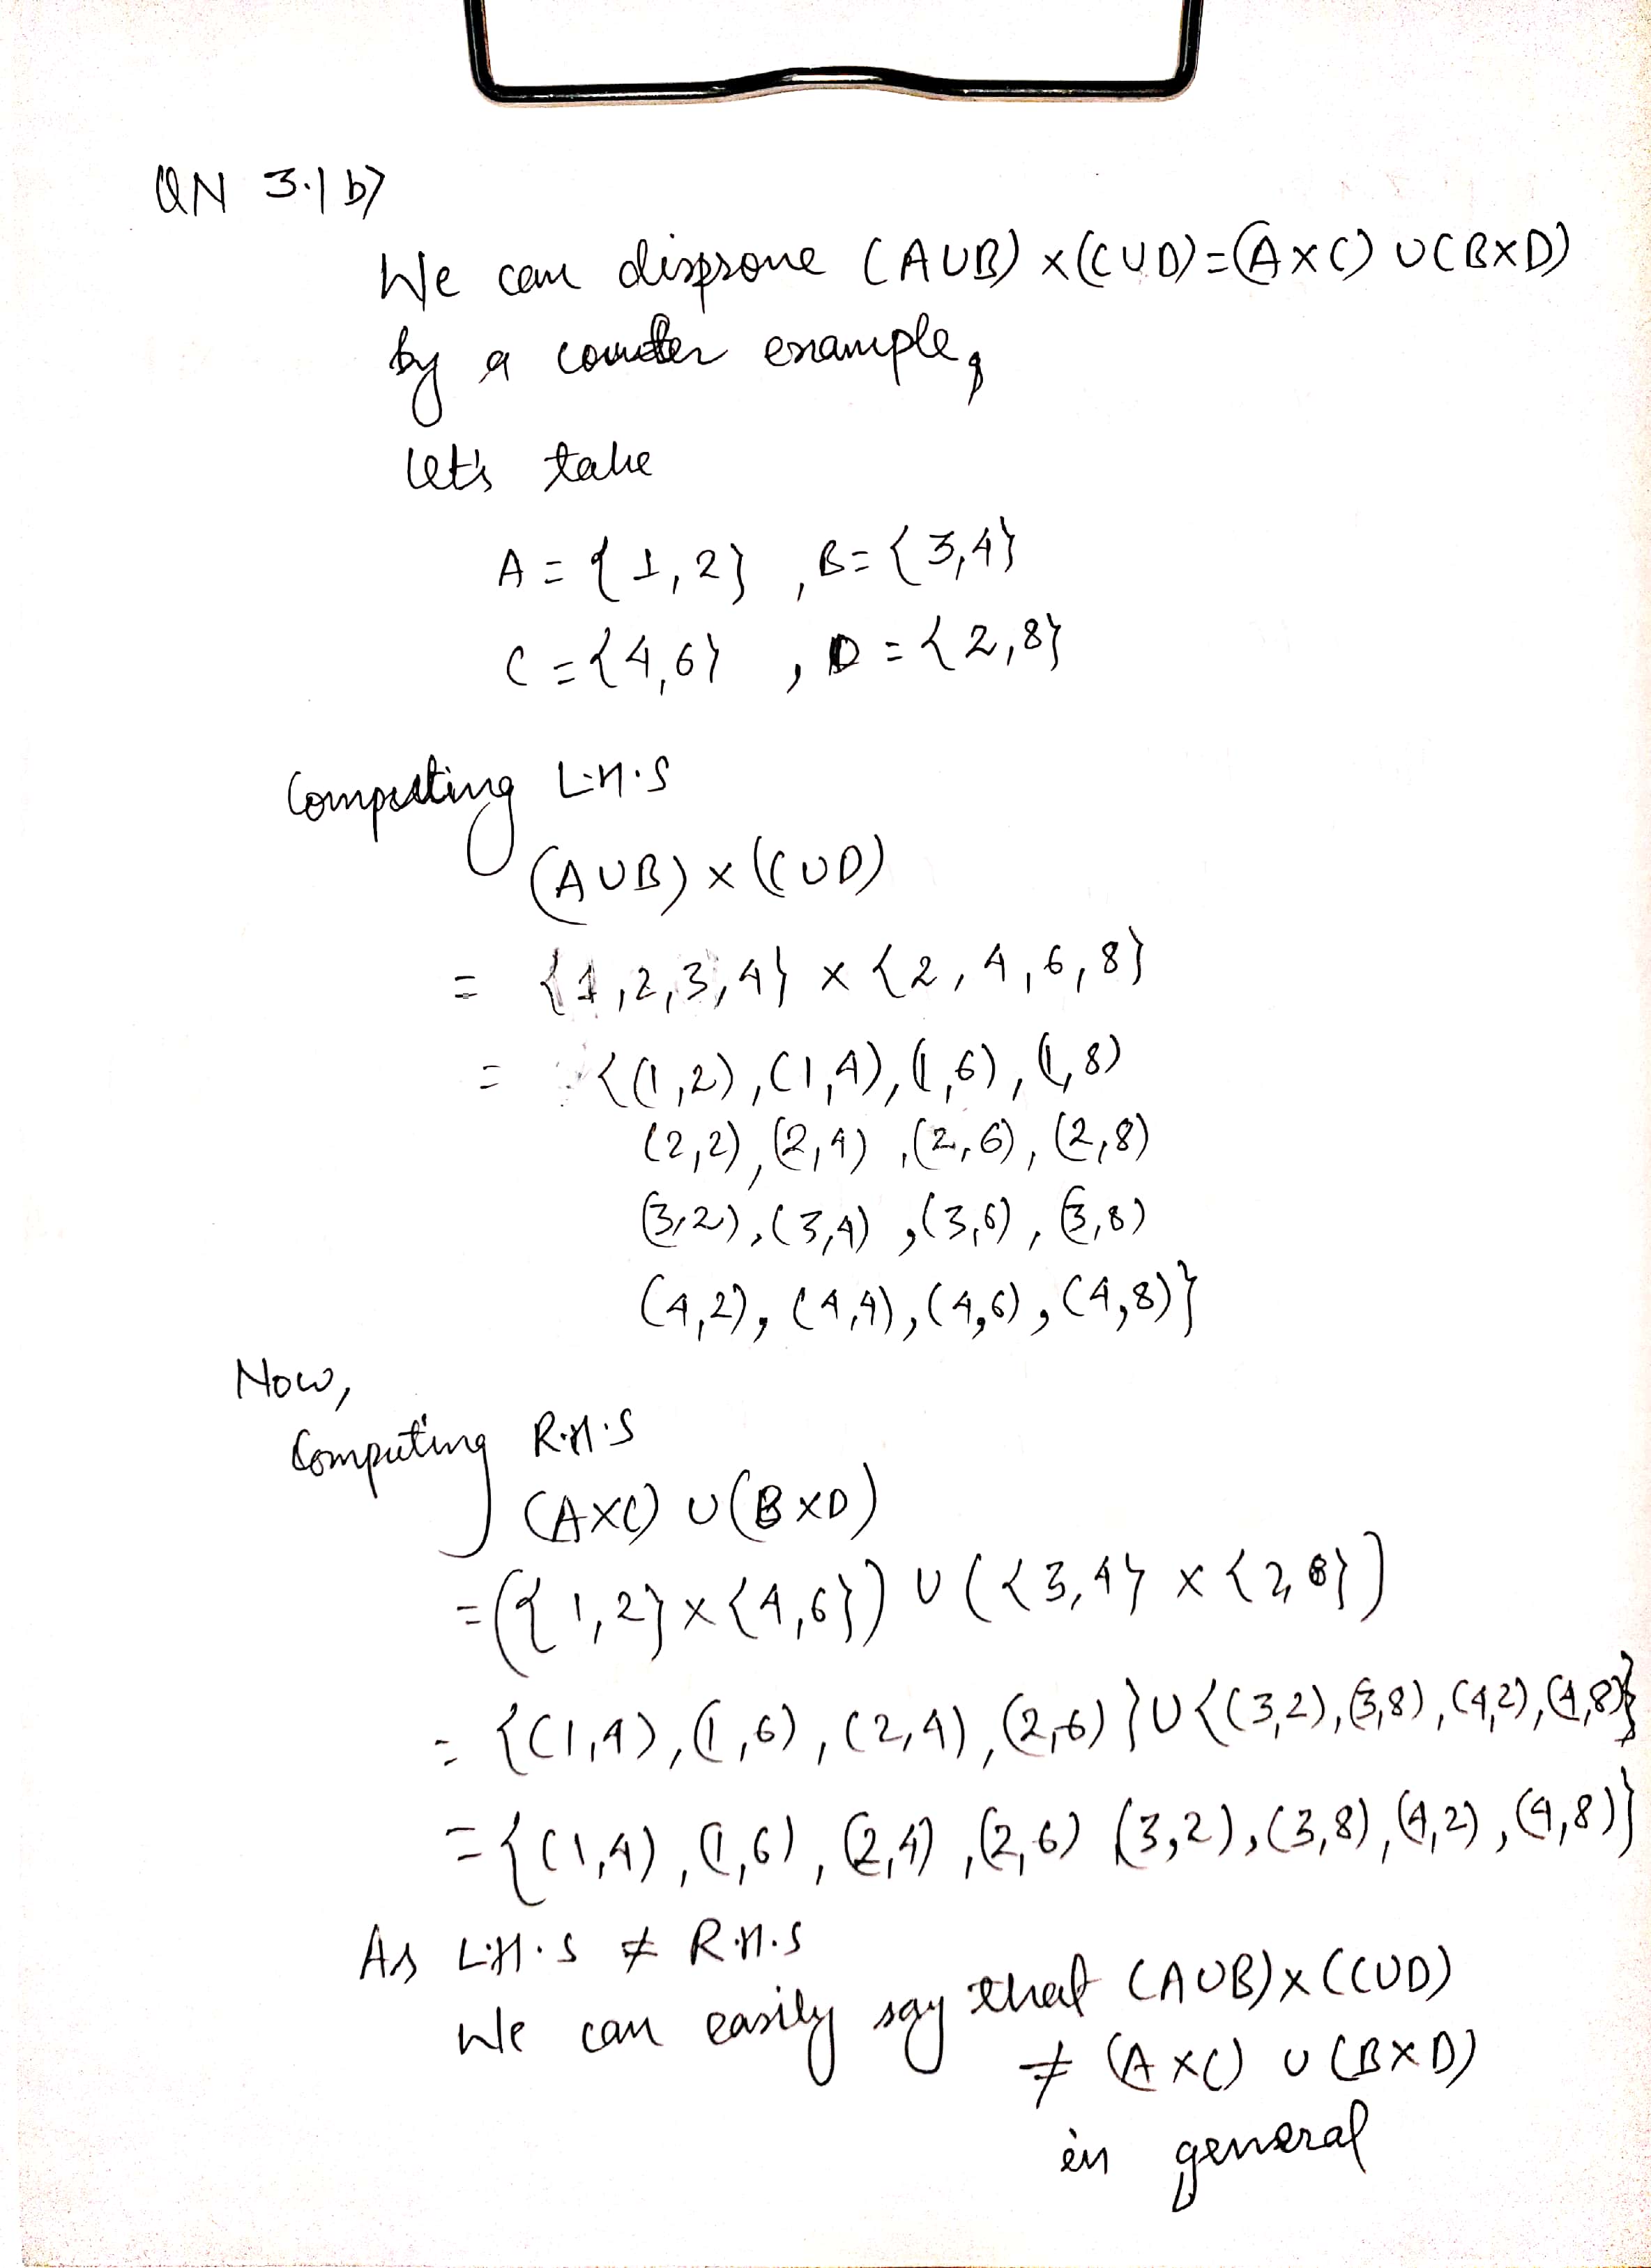 QN 3.1 b>
We can disprove (AUB) x(CUD)=(AxC) U(BxD)
by a counter example,
let's take
A = {1,2} , B= {3,4}
C = {4,6} , D = {2,8}
Computing L.H.S
(AUB) x (CUD)
= {1,2,3,4} x {2,4,6,8}
= {(1,2),(1,4),(1,6),(1,8)
(2,2),(2,4),(2,6),(2,8)
(3,2),(3,4),(3,6),(3,8)
(4,2),(4,4),(4,6),(4,8)}
Now,
Computing R.H.S
(AxC) U(BxD)
=({1,2}x{4,6}) U ({3,4} x {2,8})
= {(1,4),(1,6),(2,4),(2,6)}U{(3,2),(3,8),(4,2),(4,8)}
={(1,4),(1,6),(2,4),(2,6) (3,2),(3,8),(4,2),(4,8)}
As L.H.S ≠ R.H.S
We can easily say that (AUB)x(CUD)
≠ (AxC) U(BxD)
in general